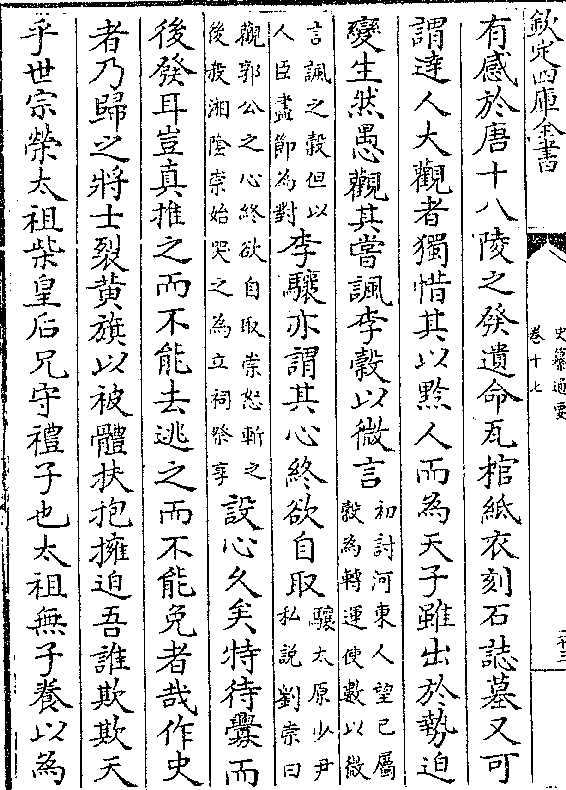 欽定四庫全書
史纂通要
卷十七
二十三
有感於唐十八陵之發遺命瓦棺紙衣刻石誌墓又可
謂達人大觀者獨惜其以黥人而為天子雖出於勢迫
變生然愚觀其嘗諷李穀以微言
初討河東人望已屬
穀為轉運使數以微
言諷之穀但以
人臣盡節為對
李驤亦謂其心終欲自取
驤太原少尹
私說劉崇曰
觀郭公之心終欲自取崇怒斬之
後被湘陰崇始哭之為立祠祭享
設心久矣特待釁而
後發耳豈真推之而不能去逃之而不能免者哉作史
者乃歸之將士裂黃旗以被體扶抱擁迫吾誰欺欺天
乎世宗榮太祖柴皇后兄守禮子也太祖無子養以為